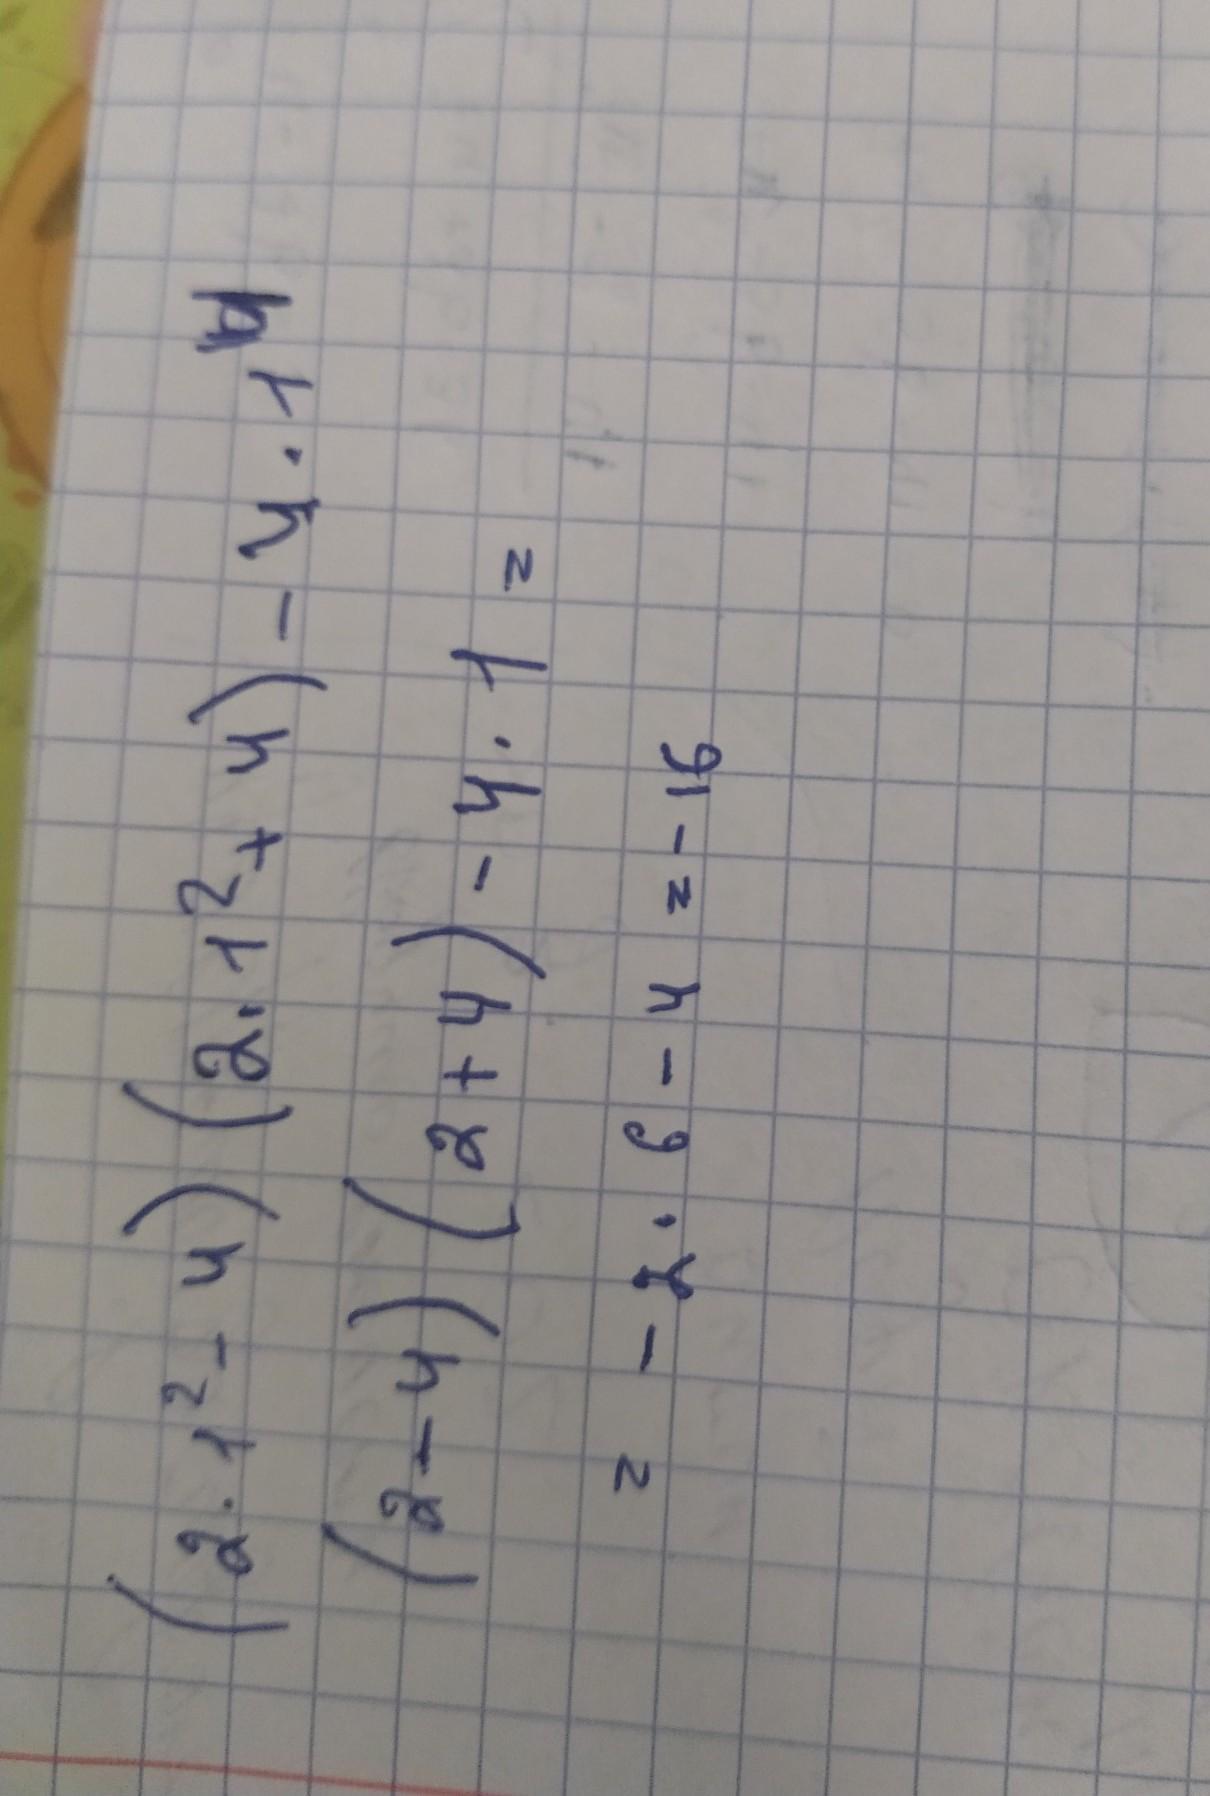 (2·1²-4)(2·1²+4)-4·1⁴
(2-4)(2+4)-4·1=
=-2·6-4=-16